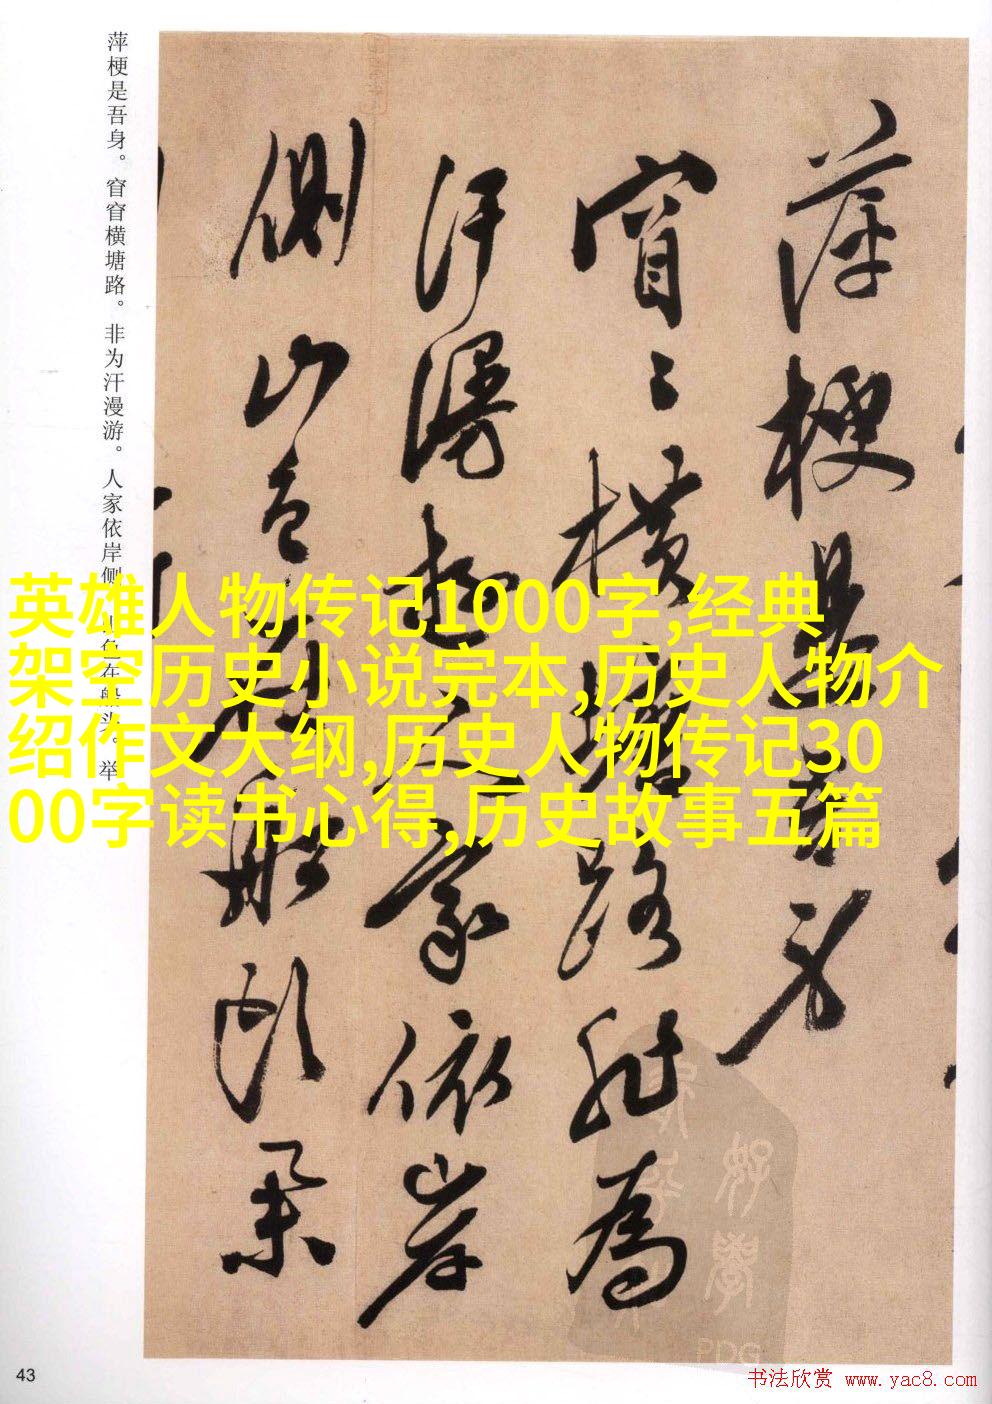 萍梗是吾身。窅窅横塘路。非为汗漫游。人家依岸侧。山色在船头。举
萍梗是吾身
窅窅横塘路非为
汗漫游人家依岸
侧山色在船头举
英雄人物传记1000字,经典
架空历史小说完本,历史人物介
绍作文大纲,历史人物传记30
00字读书心得,历史故事五篇
PDG
43
书法欣赏 www.yac8.com